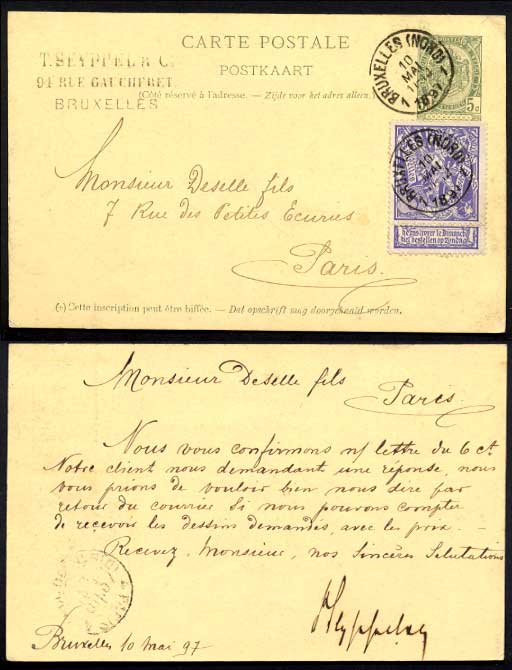 CARTE POSTALE
POSTKAART
T. SEYPPEL & C.
94 RUE GAUCHERET
BRUXELLES
(Côté réservé à l'adresse. — Zijde voor het adres alleen.)
BRUXELLES (NORD) 1
10
MAI
1897
5c
BRUXELLES (NORD)
10
MAI
Ne pas livrer le Dimanche
Niet bestellen op Zondag
Monsieur Deselle fils
7 Rue des Petites Ecuries
Paris.
(*) Cette inscription peut être biffée. — Dat opschrift mag doorgehaald worden.
Monsieur Deselle fils
Paris.
Nous vous confirmons n/ lettre du 6 ct.
Notre client nous demandant une réponse, nous
vous prions de vouloir bien nous dire par
retour du courrier si nous pouvons compter
de recevoir les dessins demandés, avec les prix. —
Recevez, Monsieur, nos sincères Salutations
Bruxelles 10 mai 97